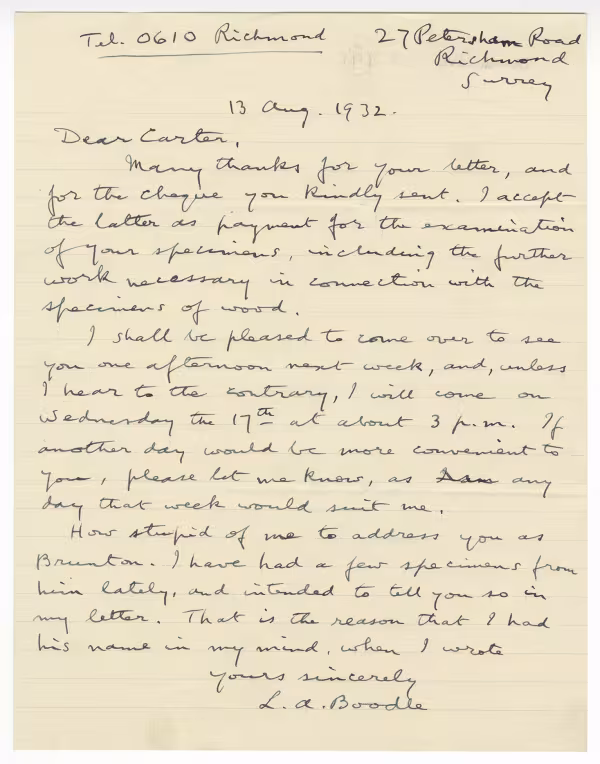 Tel. 0610 Richmond
27 Petersham Road
Richmond
Surrey
13 Aug. 1932.
Dear Carter,
Many thanks for your letter, and
for the cheque you kindly sent. I accept
the latter as payment for the examination
of your specimens, including the further
work necessary in connection with the
specimens of wood.
I shall be pleased to come over to see
you one afternoon next week, and, unless
I hear to the contrary, I will come on
Wednesday the 17th at about 3 p.m. If
another day would be more convenient to
you, please let me know, as any
day that week would suit me.
How stupid of me to address you as
Brunton. I have had a few specimens from
him lately, and intended to tell you so in
my letter. That is the reason that I had
his name in my mind, when I wrote
yours sincerely
L. A. Boodle